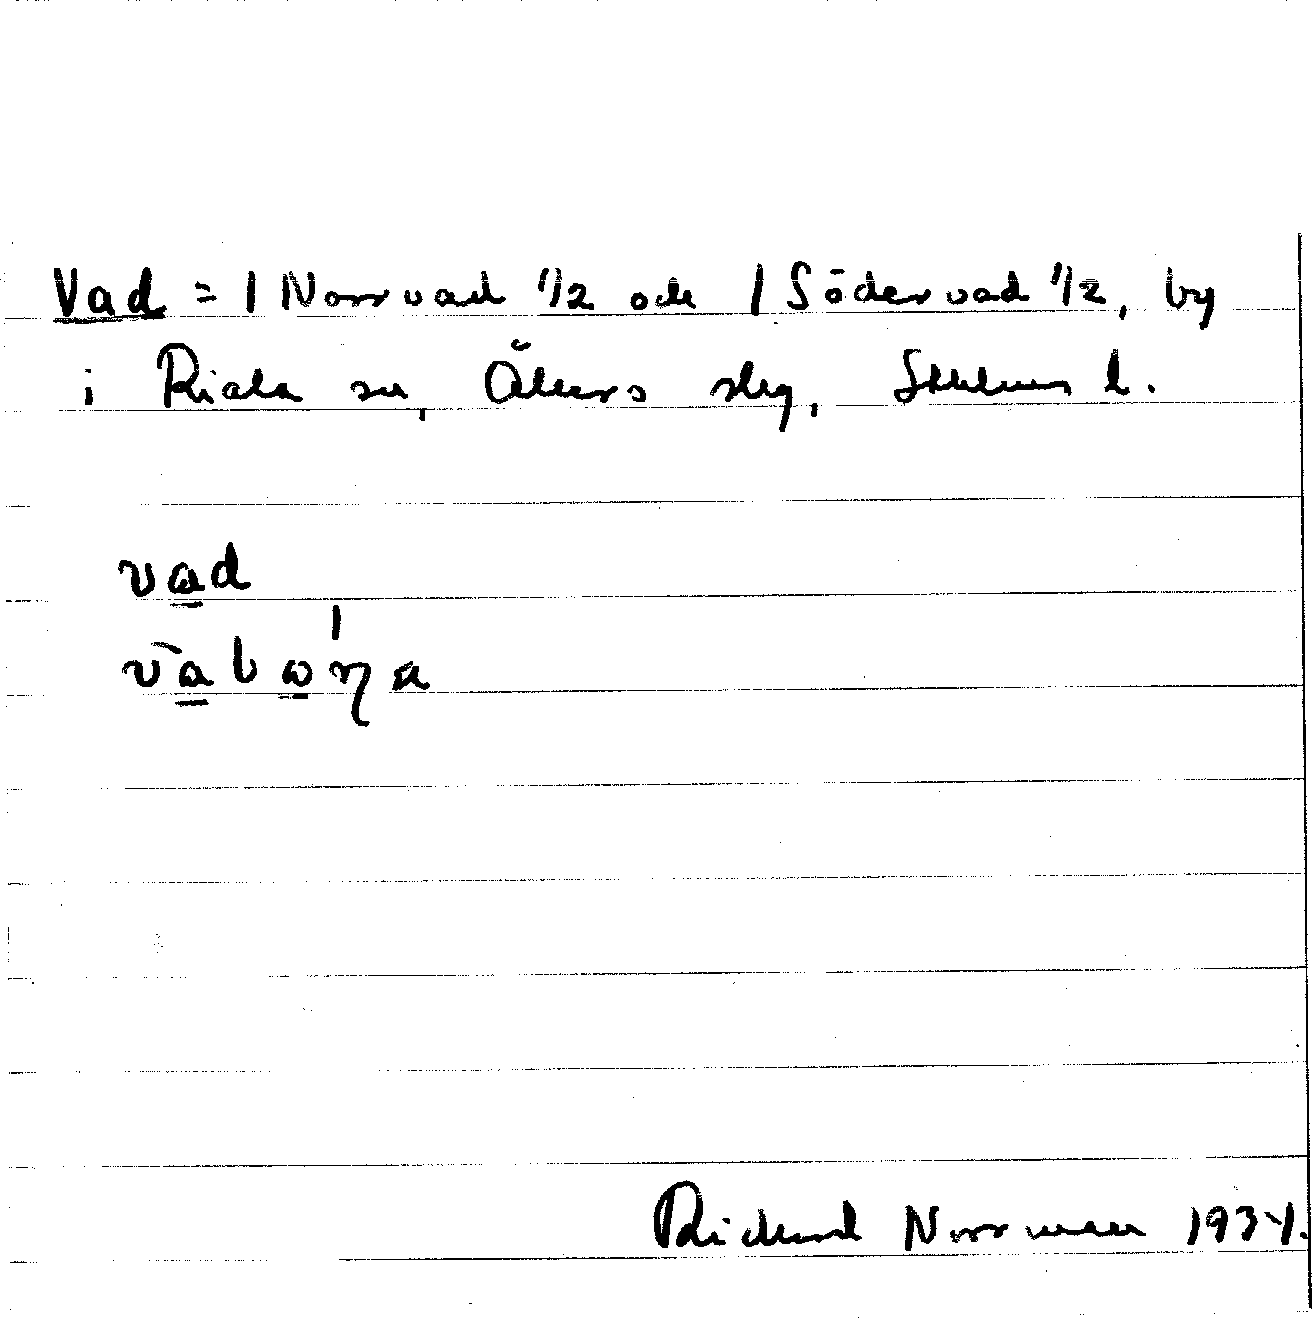 Vad = 1 Norrvad 1/2 och 1 Södervad 1/2, by
i Riala sn, Åkers skg, Sthlms l.
vad
vabơŋa
Richard Norrman 1934.